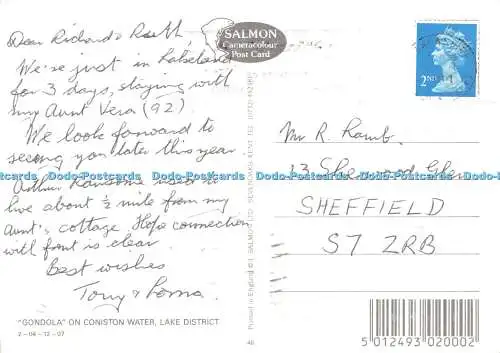 SALMON
Cameracolour
Post Card
2ND
Dear Richard & Ruth,
We're just in Lakeland
for 3 days, staying with
my Aunt Vera (92)
We look forward to
seeing you later this year
Arthur Ransome used to
live about ½ mile from my
Aunt's cottage. Hope connection
with front is clear.
Best wishes
Tony & Lorna.
"GONDOLA" ON CONISTON WATER, LAKE DISTRICT
2-06-12-07
Mr R. Lamb.
13 Sherwood Glen
SHEFFIELD
S7 2RB
Printed in England © J. SALMON LTD., SEVENOAKS, KENT
46
5 012493 020002
Dodo-Postcards Dodo-Postcards Dodo-Postcards Dodo-Postcards Dodo-Postcards